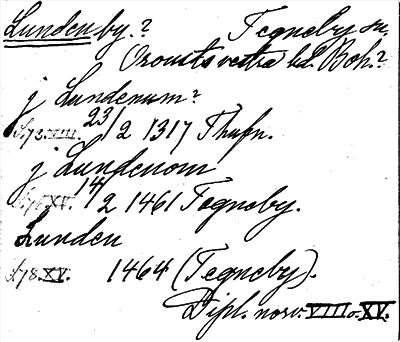 Lundenby.? Tegneby sn.
Orousts vestra hd. Boh.?
j Lundenum?
S. 73. VIII. 23/2 1317 Thufn.
j Lundenom
XV. 14/2 1461 Tegneby.
Lunden
S. 78. XV. 1464 (Tegneby).
Dipl. norv. VIII o. XV.